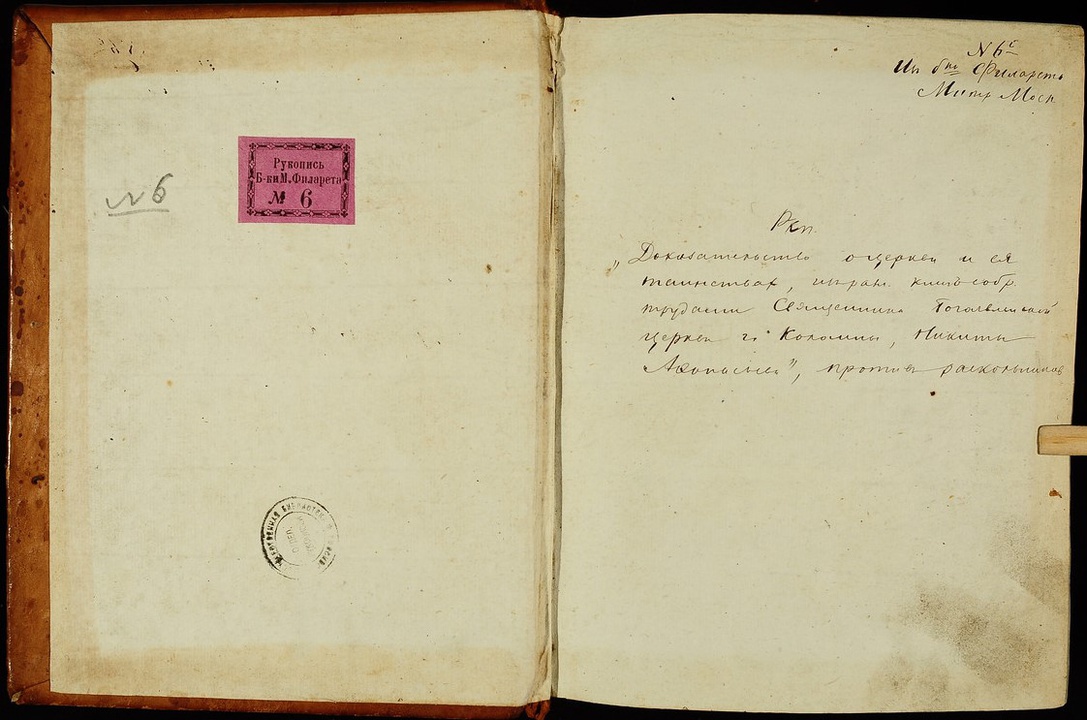 № 6
Рукопись
Б-ки М. Филарета
№ 6
БИБЛИОТЕКА
N 6
Из б-ки Филарета
Митр Моск
Ркп.
„Доказательство о церкви и ея
таинствах, из ран. книг собр.
трудами Священника Богоявленской
церкви г. Коломны, Никиты
", против раскольников